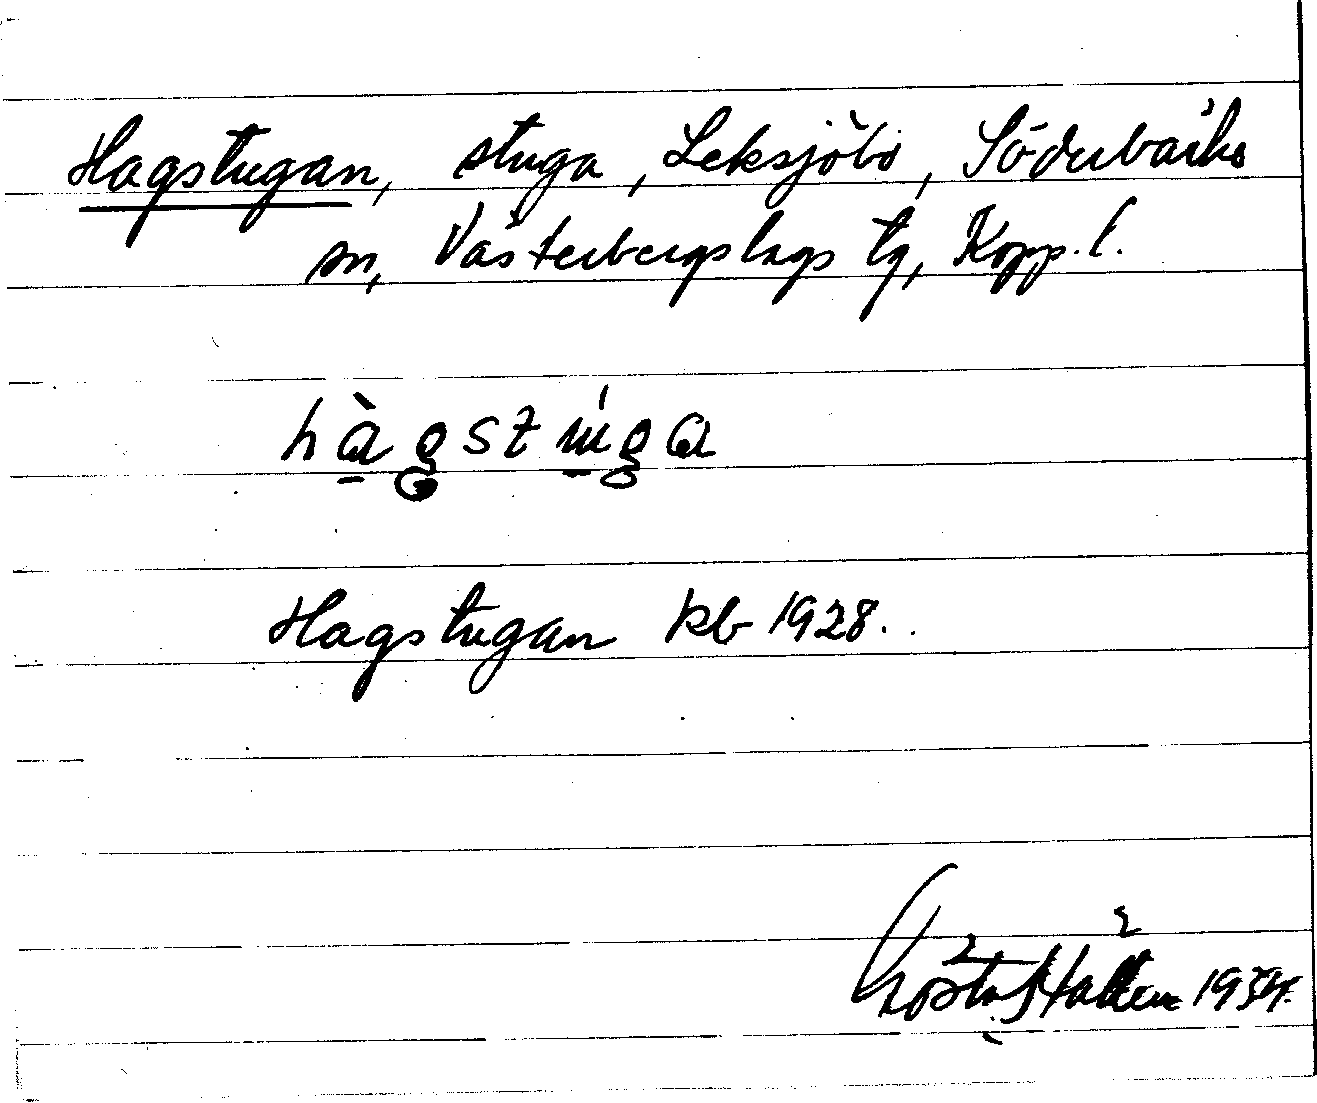 Hagstugan, stuga, Leksjöbo, Söderbärke
sn, Västerbergslags tg, Kopp. l.
hàgstúga
Hagstugan kb 1928.
Gösta 1934.